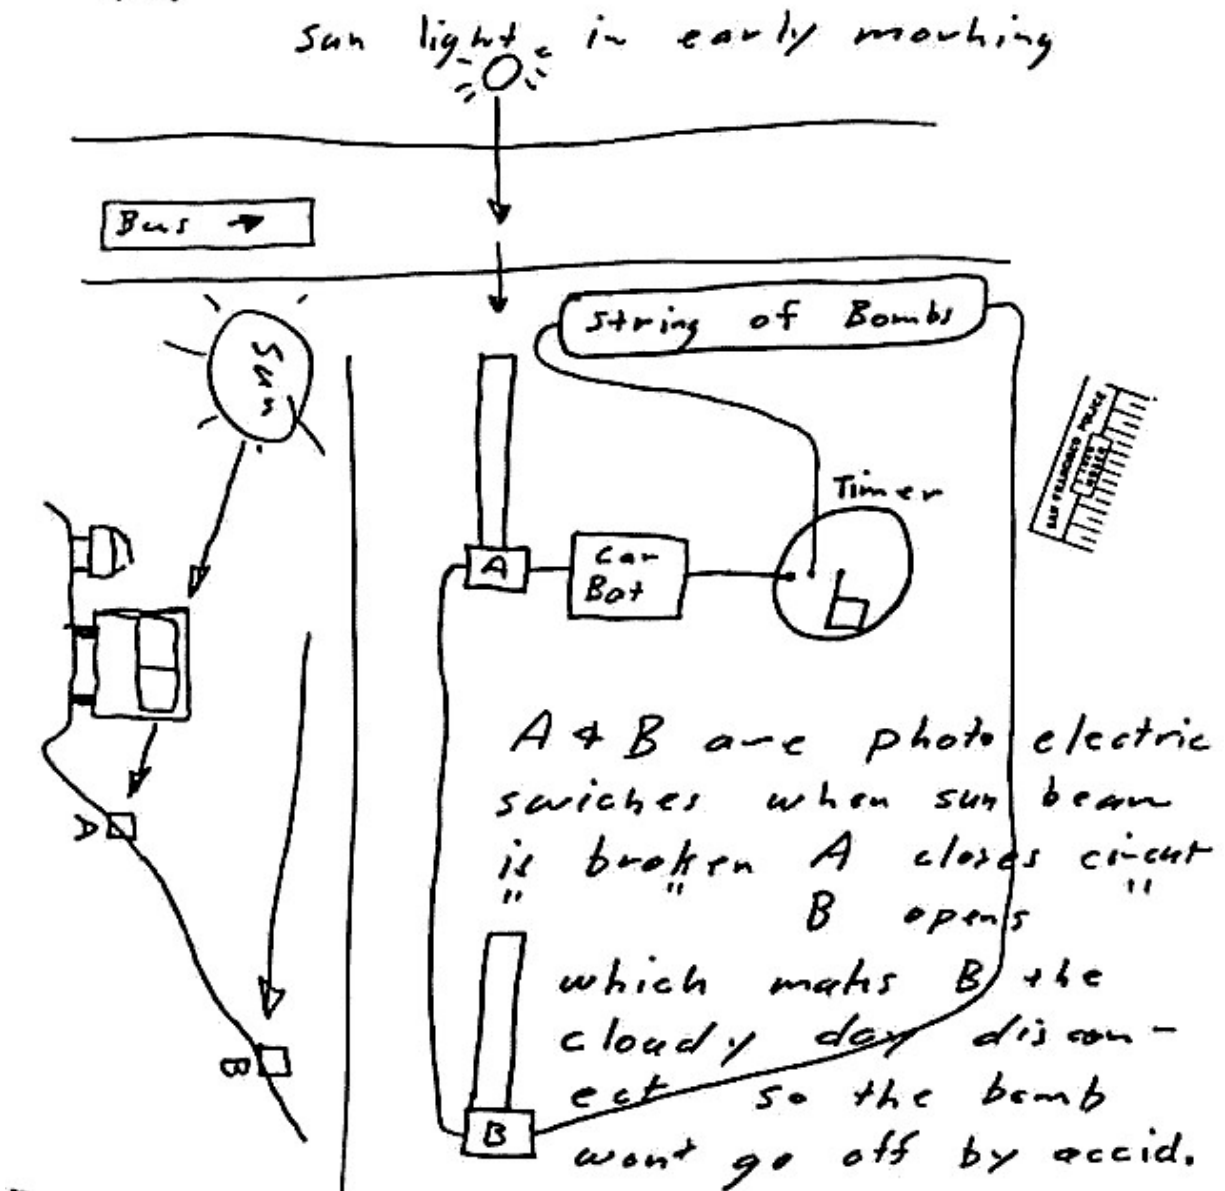 sun light in early morning
Bus →
String of Bombs
Sun
SAN FRANCISCO POLICE
Timer
A
Car
Bat
A & B are photo electric
swiches when sun beam
is broken A closes circut
" " B opens "
A
which maks B the
cloudy day discon-
ect so the bomb
B
B
wont go off by accid.